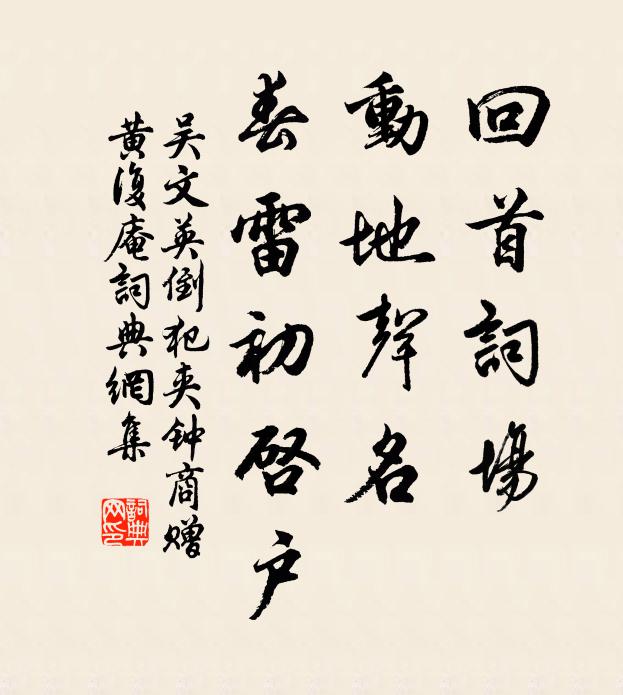 回首詞場
動地聲名
春雷初啓戶
吴文英倒犯夹钟商赠
黃復庵詞典網集
詞典网印